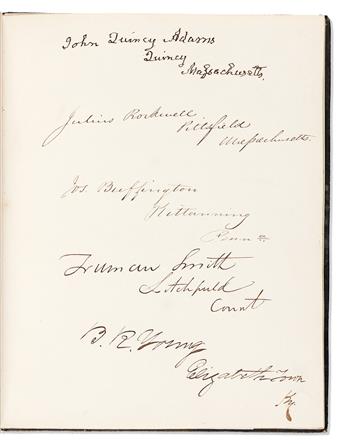 John Quincy Adams
Quincy
Massachusetts.
Julius Rockwell
Pittsfield
Massachusetts.
Jos Buffington
Kittanning
Penna
Truman Smith
Litchfield
Connt
B. R. Young
Elizabeth Town
Ky.